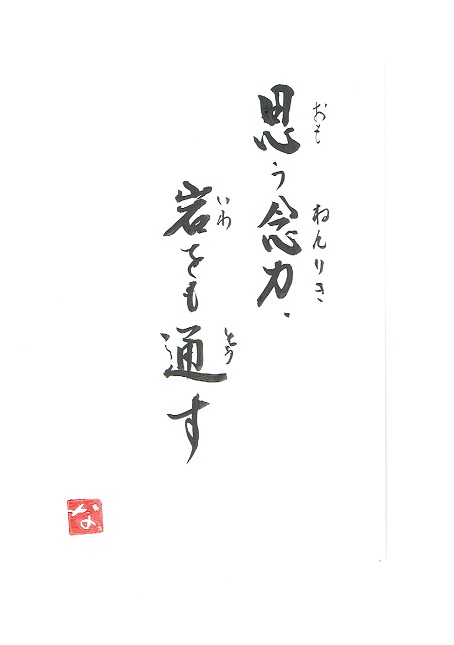 思う念力、
おも ねんりき
岩をも通す
いわ とう
な